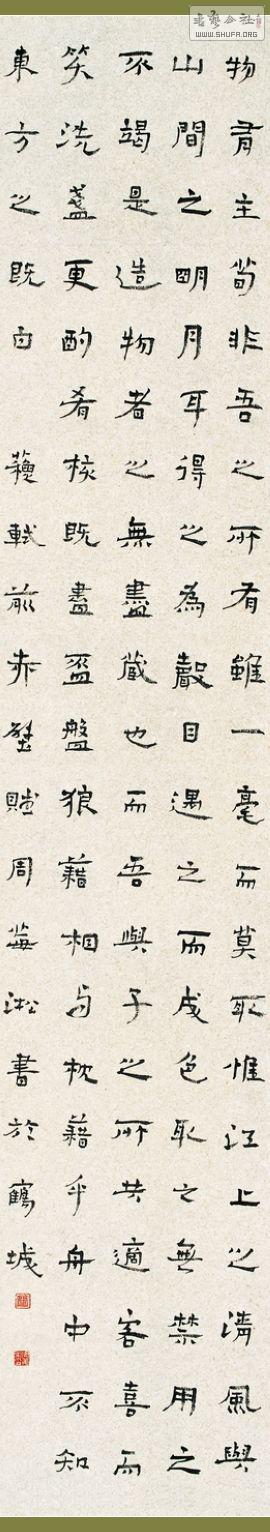 物有主苟非吾之所有雖一毫而莫取惟江上之清風與
山間之明月耳得之為聲目遇之而成色取之無禁用之
不竭是造物者之無盡藏也而吾與子之所共適客喜而
笑洗盞更酌肴核既盡杯盤狼藉相與枕藉乎舟中不知
東方之既白 蘇軾前赤壁賦周海淞書於鶴城
書藝公社
WWW.SHUFA.ORG